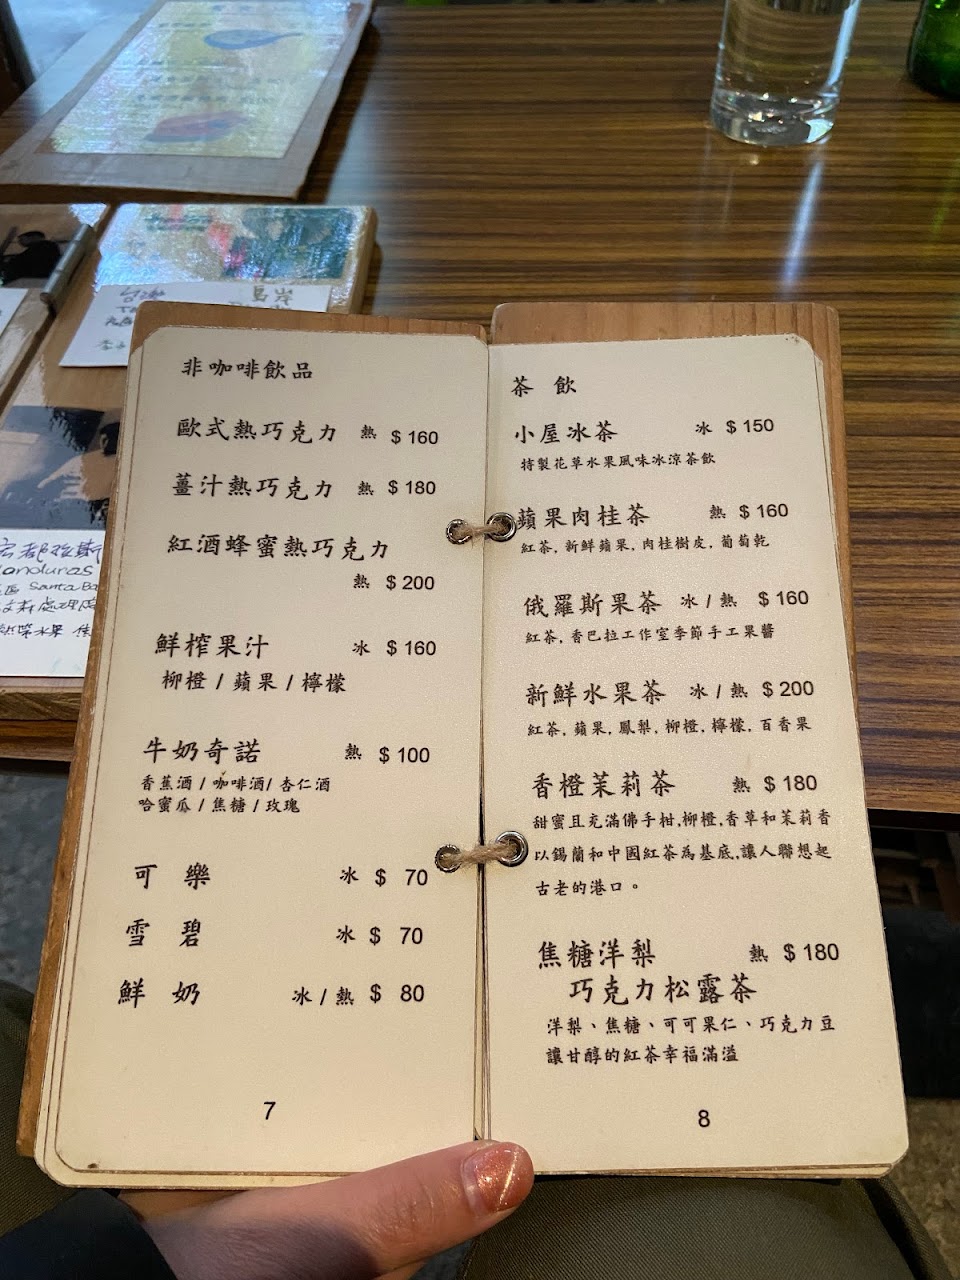 非咖啡飲品
歐式熱巧克力 熱 $160
薑汁熱巧克力 熱 $180
紅酒蜂蜜熱巧克力
熱 $200
鮮榨果汁 冰 $160
柳橙 / 蘋果 / 檸檬
牛奶奇諾 熱 $100
香蕉酒 / 咖啡酒 / 杏仁酒
哈蜜瓜 / 焦糖 / 玫瑰
可樂 冰 $ 70
雪碧 冰 $ 70
鮮奶 冰 / 熱 $ 80
7
茶飲
小屋冰茶 冰 $150
特製花草水果風味冰涼茶飲
蘋果肉桂茶 熱 $160
紅茶, 新鮮蘋果, 肉桂樹皮, 葡萄乾
俄羅斯果茶 冰 / 熱 $160
紅茶, 香巴拉工作室季節手工果醬
新鮮水果茶 冰 / 熱 $200
紅茶, 蘋果, 鳳梨, 柳橙, 檸檬, 百香果
香橙茉莉茶 熱 $180
甜蜜且充滿佛手柑,柳橙,香草和茉莉香
以錫蘭和中國紅茶為基底,讓人聯想起
古老的港口。
焦糖洋梨 熱 $180
巧克力松露茶
洋梨、焦糖、可可果仁、巧克力豆
讓甘醇的紅茶幸福滿溢
8
宏都拉斯
Honduras
Santa Ba